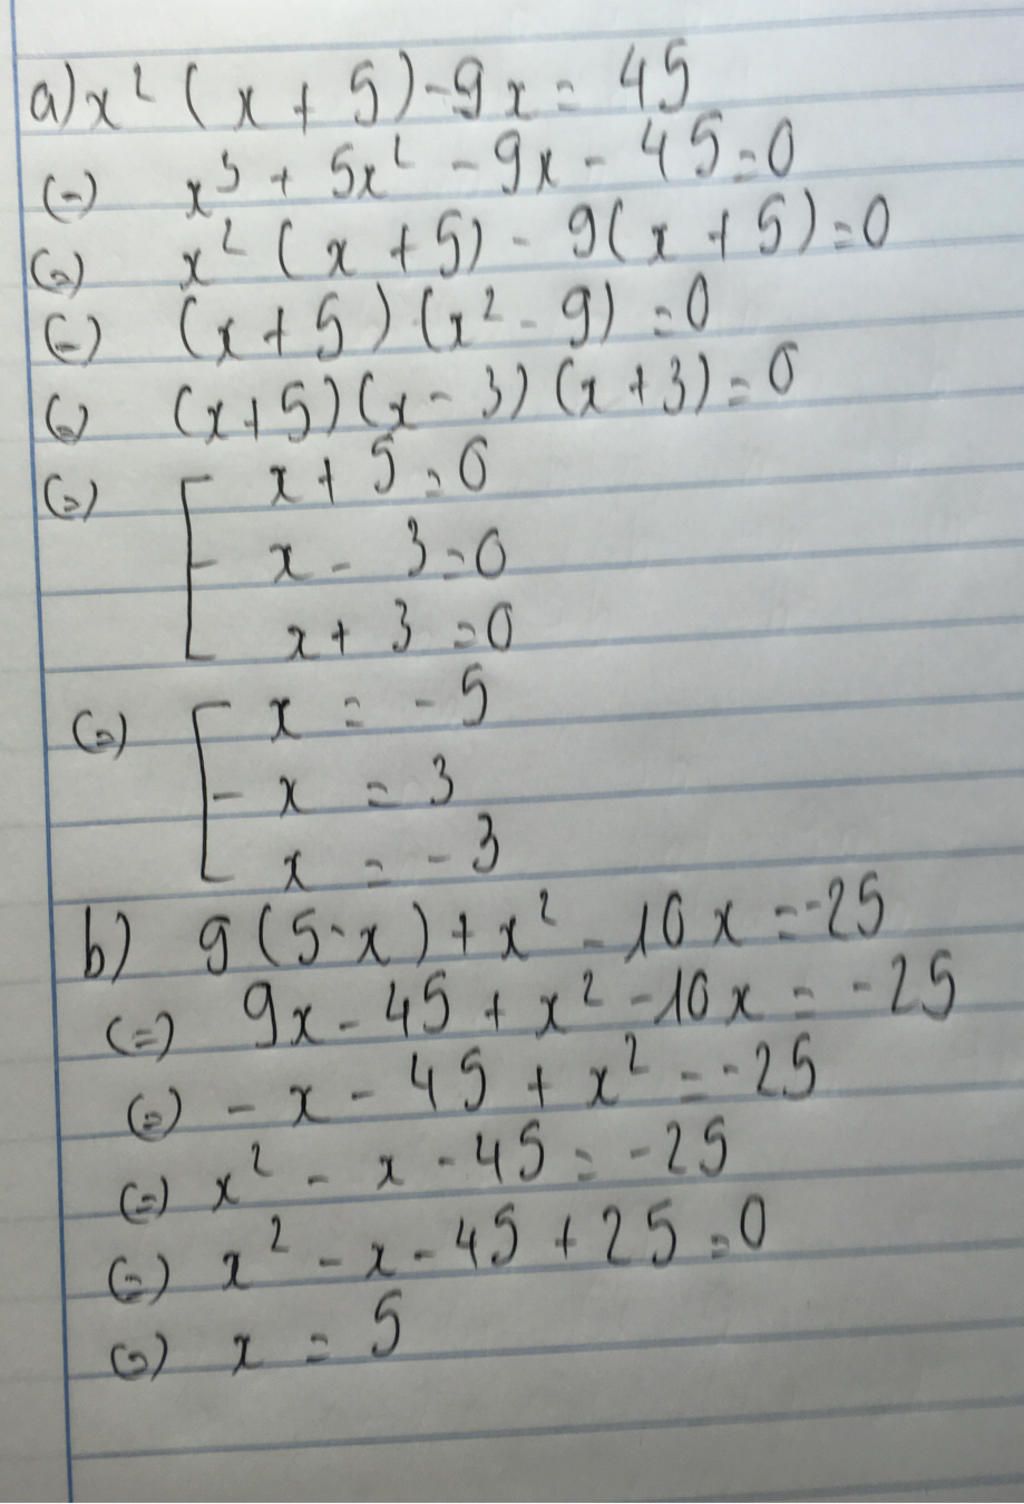 a) x² (x + 5) - 9x = 45
(=) x³ + 5x² - 9x - 45 = 0
(=) x² (x + 5) - 9(x + 5) = 0
(=) (x + 5) (x² - 9) = 0
(=) (x + 5) (x - 3) (x + 3) = 0
(=) [ x + 5 = 0
x - 3 = 0
x + 3 = 0
(=) [ x = -5
x = 3
x = -3
b) 9(5 - x) + x² - 10x = -25
(=) 9x - 45 + x² - 10x = -25
(=) - x - 45 + x² = -25
(=) x² - x - 45 = -25
(=) x² - x - 45 + 25 = 0
(=) x = 5